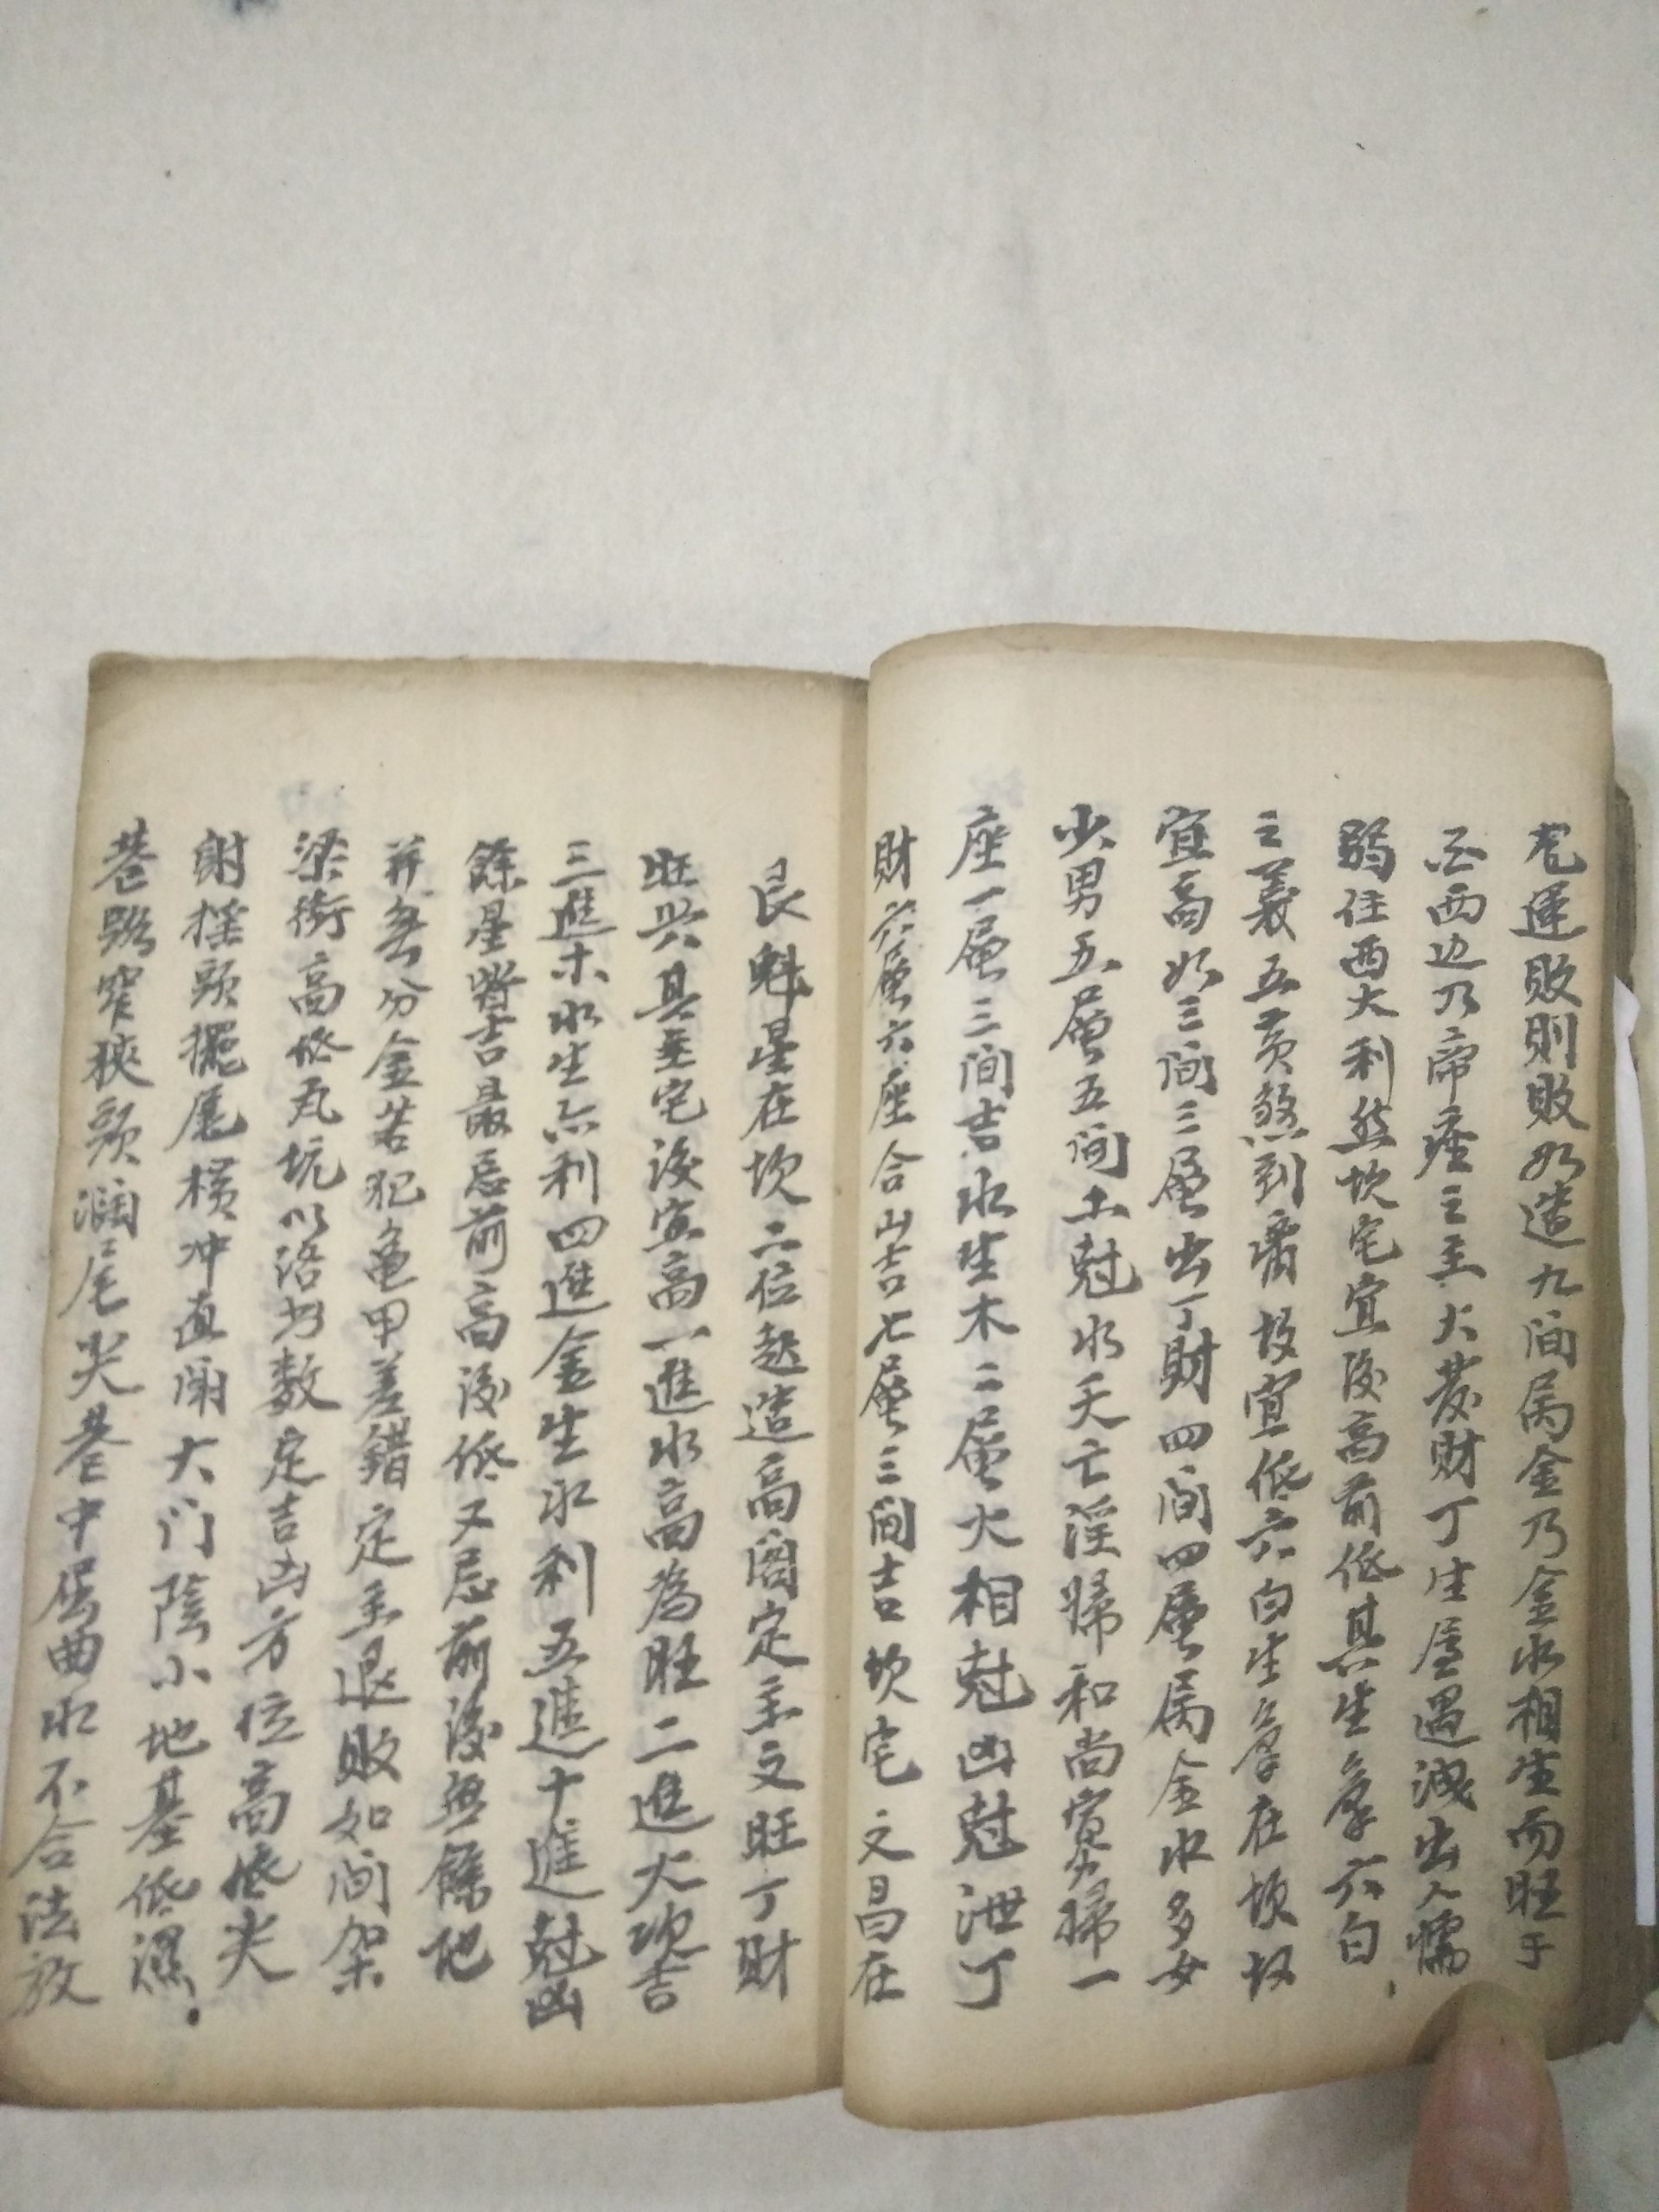 運敗則敗如造九间属金乃金水相生而旺于
西边乃帝座之主大发財丁生居遇洩出人懦
弱住西大利然坎宅宜後高前低其生氣六白
之義五黄煞到离故宜低六白生氣在坎故
宜高如三间三層出丁財四间四層属金水多女
少男五層五间土尅水夭亡淫歸和尚寡婦一
座一層三间吉水生木二層火相尅凶尅泄丁
財六層六座合山吉七層三间吉坎宅文昌在
艮魁星在坎二位起造高阁定主文旺丁財
旺兴其至宅後宜高一進水高為旺二進火次吉
三進木水生亦利四進金生水利五進十進尅凶
餘星皆吉最忌前高後低又忌前後無餘地
并無分金若犯亀甲差錯定主退敗如间架
梁街高低瓦坑以活为數定吉凶方位高低尖
射摇頭擺尾横冲直闹大门陰小地基低濕
巷路窄狭頭濶尾尖巷中屈曲水不合法放